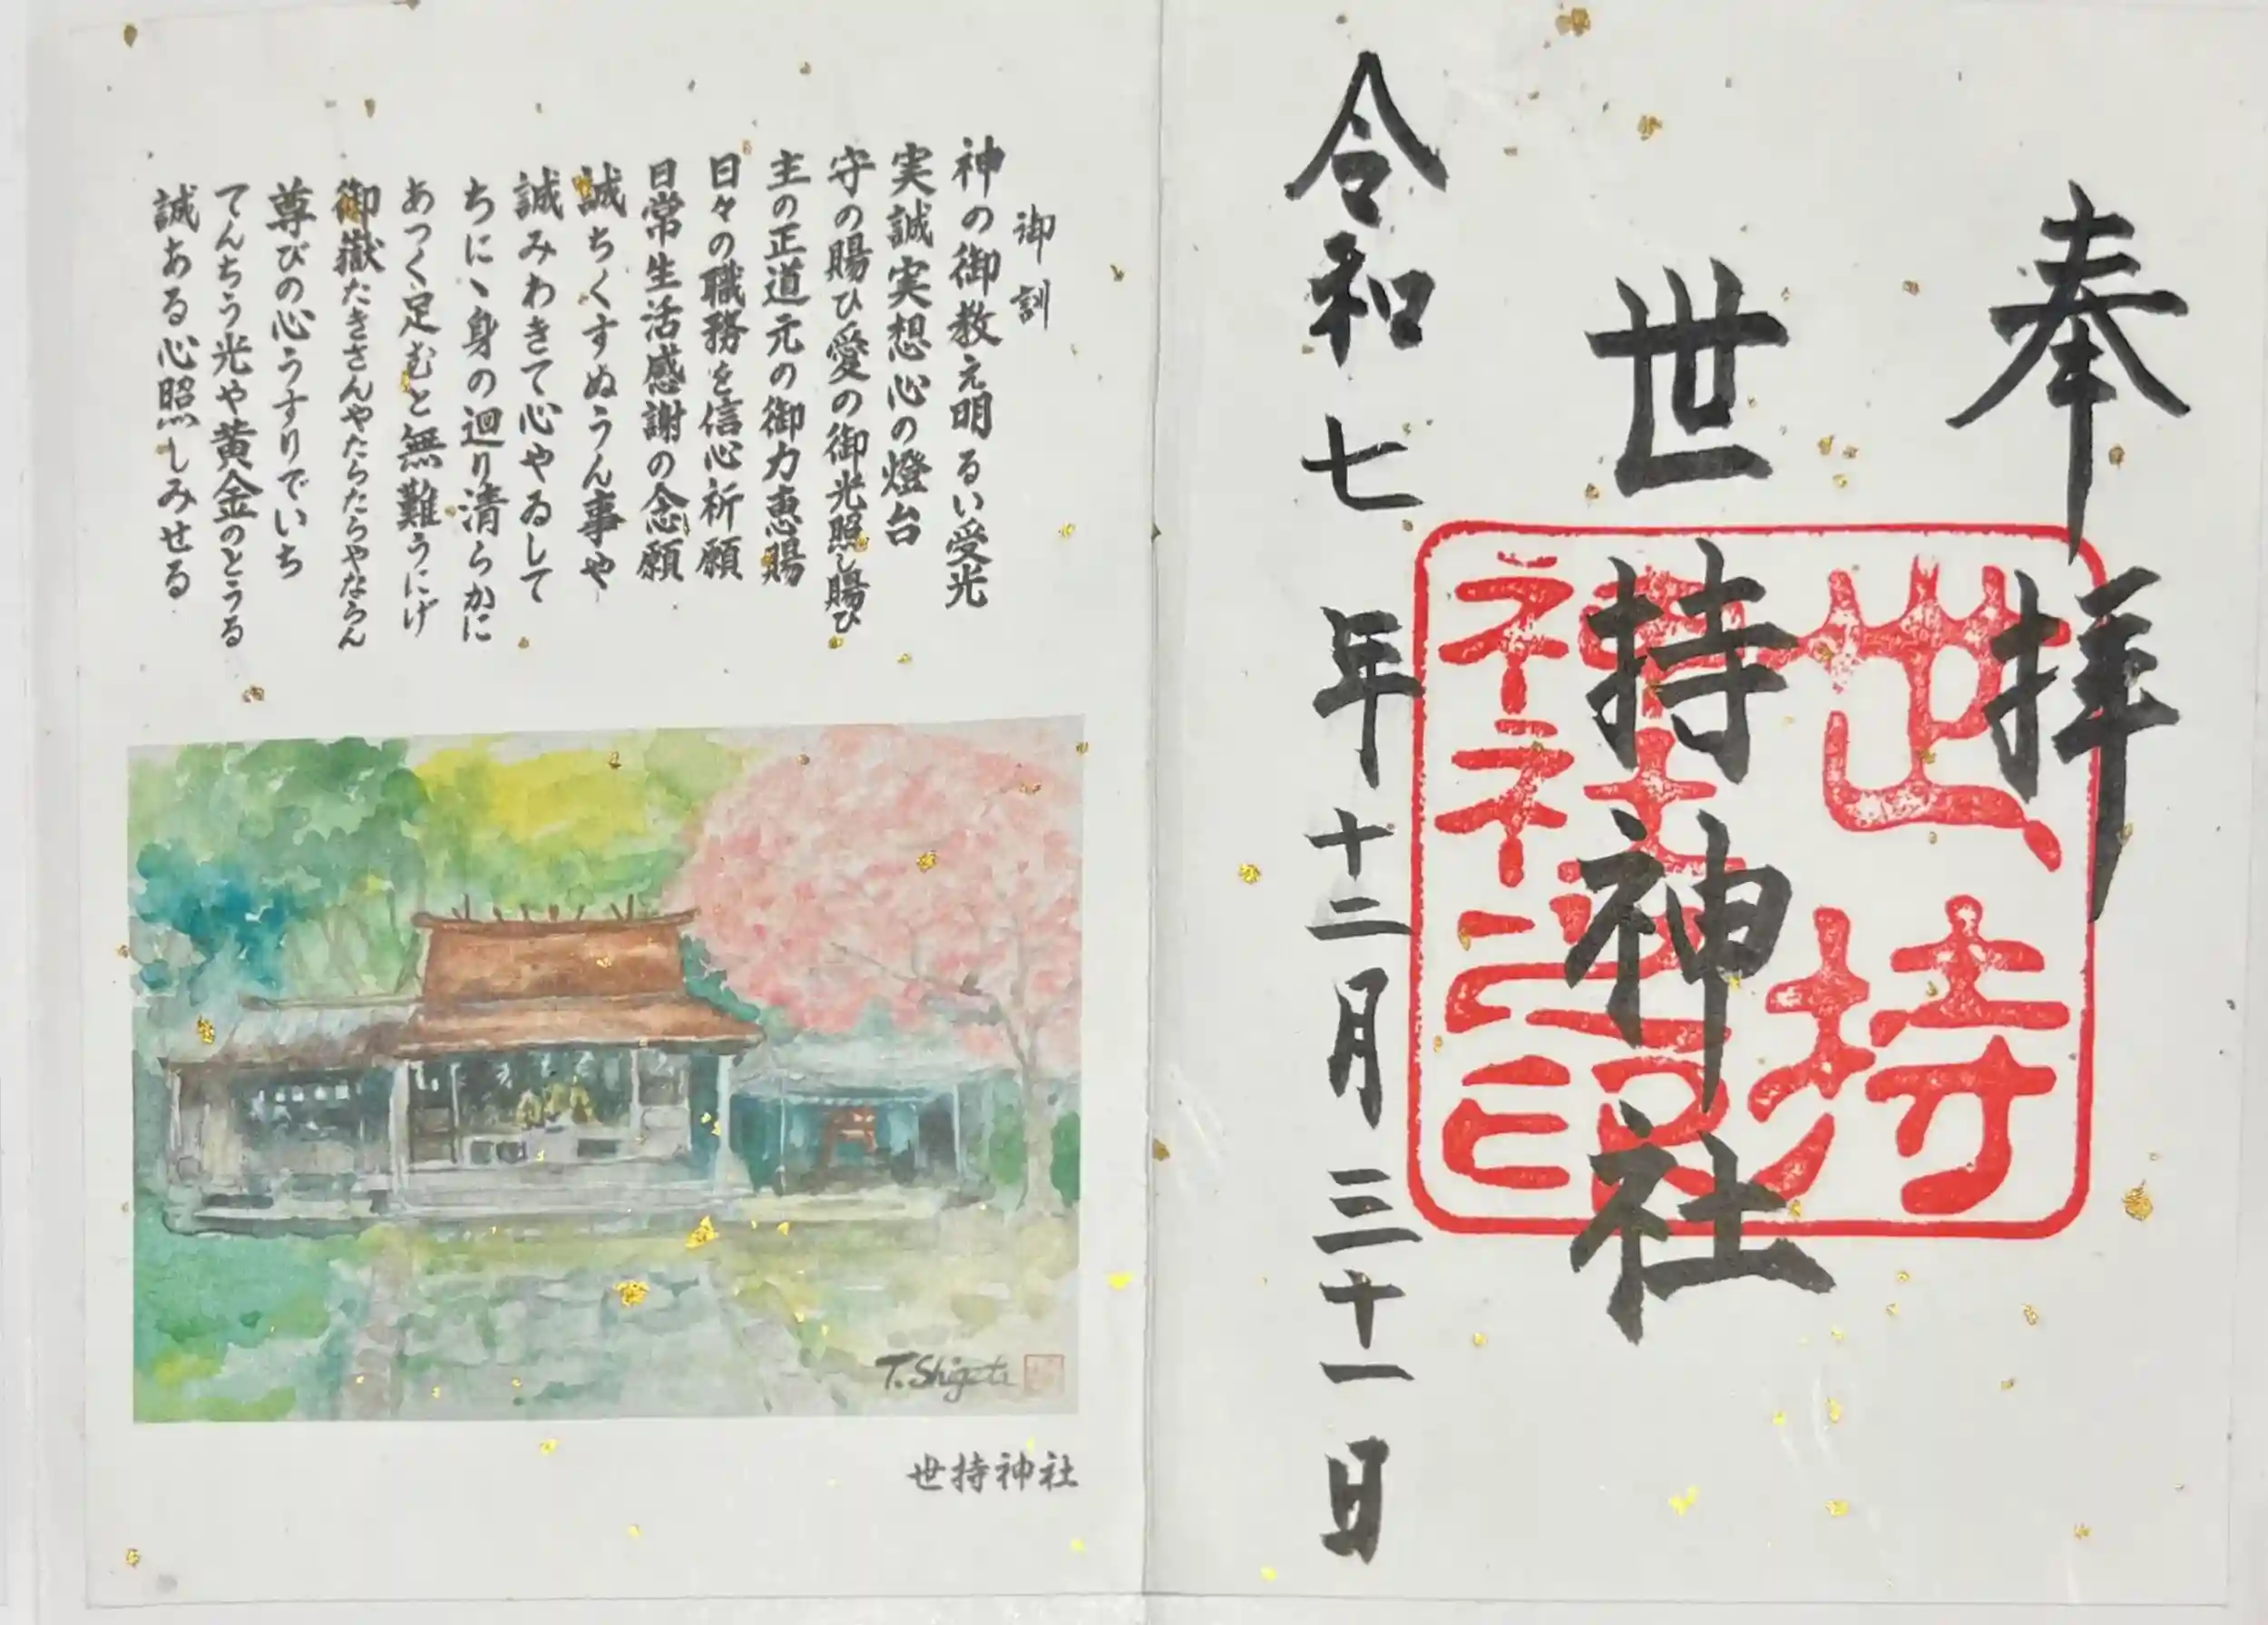 奉拝
世持神社
世持
神社之印
令和七年十二月三十一日
御訓
神の御教え明るい受光
実誠実想心の燈台
守の賜ひ愛の御光照し賜ひ
主の正道元の御力恵賜
日々の職務を信心祈願
日常生活感謝の念願
誠ちくすぬうん事や
誠みわきて心やゐして
ちにゝ身の廻り清らかに
あつく足むと無難うにげ
御嶽たきさんやたらたらやならん
尊びの心うすりでいち
てんちう光や黄金のとうる
誠ある心照しみせる
T. Shigeta
世持神社